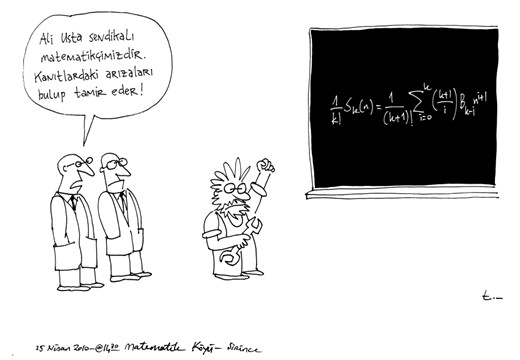 Ali Usta sendikalı
matematikçimizdir.
Kanıtlardaki arızaları
bulup tamir eder!
1/k! S_k(n) = 1/(k+1)! ∑_{i=0}^{k} (k+1 / i) B_{k-i} n^{i+1}
t.—
25 Nisan 2010–@14³⁰ Matematik Köyü – Şirince